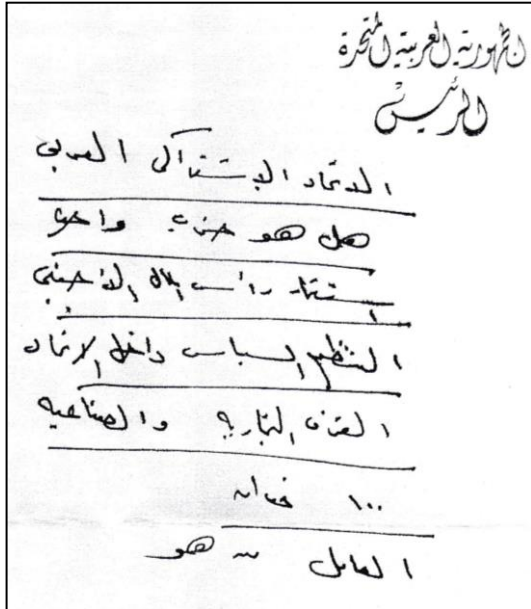 الجمهورية العربية المتحدة
الرئيس
الاتحاد الاشتراكى العربى
هل هو حزب واحد
استثمار رأس المال الأجنبى
التنظيم السياسى داخل الاتحاد
الغرف التجارية والصناعية
١٠٠ فدان
العامل من هو